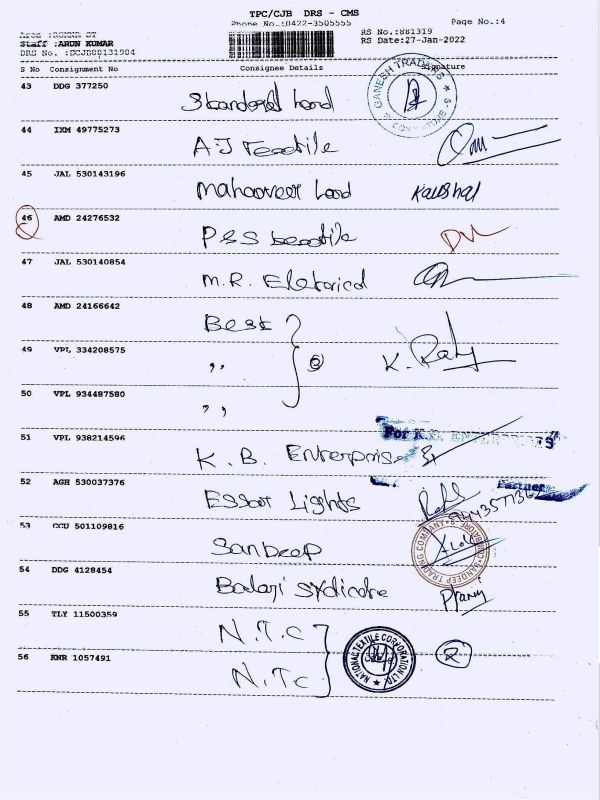 TPC/CJB DRS - CMS
Phone No.:0422-3505555
Page No.:4
Staff :ARUN KUMAR
DRS No. :DCJB88131904
RS No.:881319
RS Date:27-Jan-2022
S No Consignment No Consignee Details Signature
43 DDG 377250
GANESH TRADERS
44 IXM 49775273 A.J Textile
45 JAL 530143196 Kaushal
46 AMD 24276532 P&S
47 JAL 530140854 M.R. Eletorical
48 AMD 24166642 Best
49 VPL 334208575 ,, K.
50 VPL 934487580 ,,
51 VPL 938214596 K. B. Enterprise For K.B. ENTERPRISES
Partner
52 AGH 530037376 Essar Lights
53 CCU 501109816 Sandeep
SANDEEP TRADING COMPANY
54 DDG 4128454 Balaji
55 TLY 11500359 N.T.C
56 KNR 1057491 N.Tc 2
NATIONAL TEXTILE CORPORATION LTD.